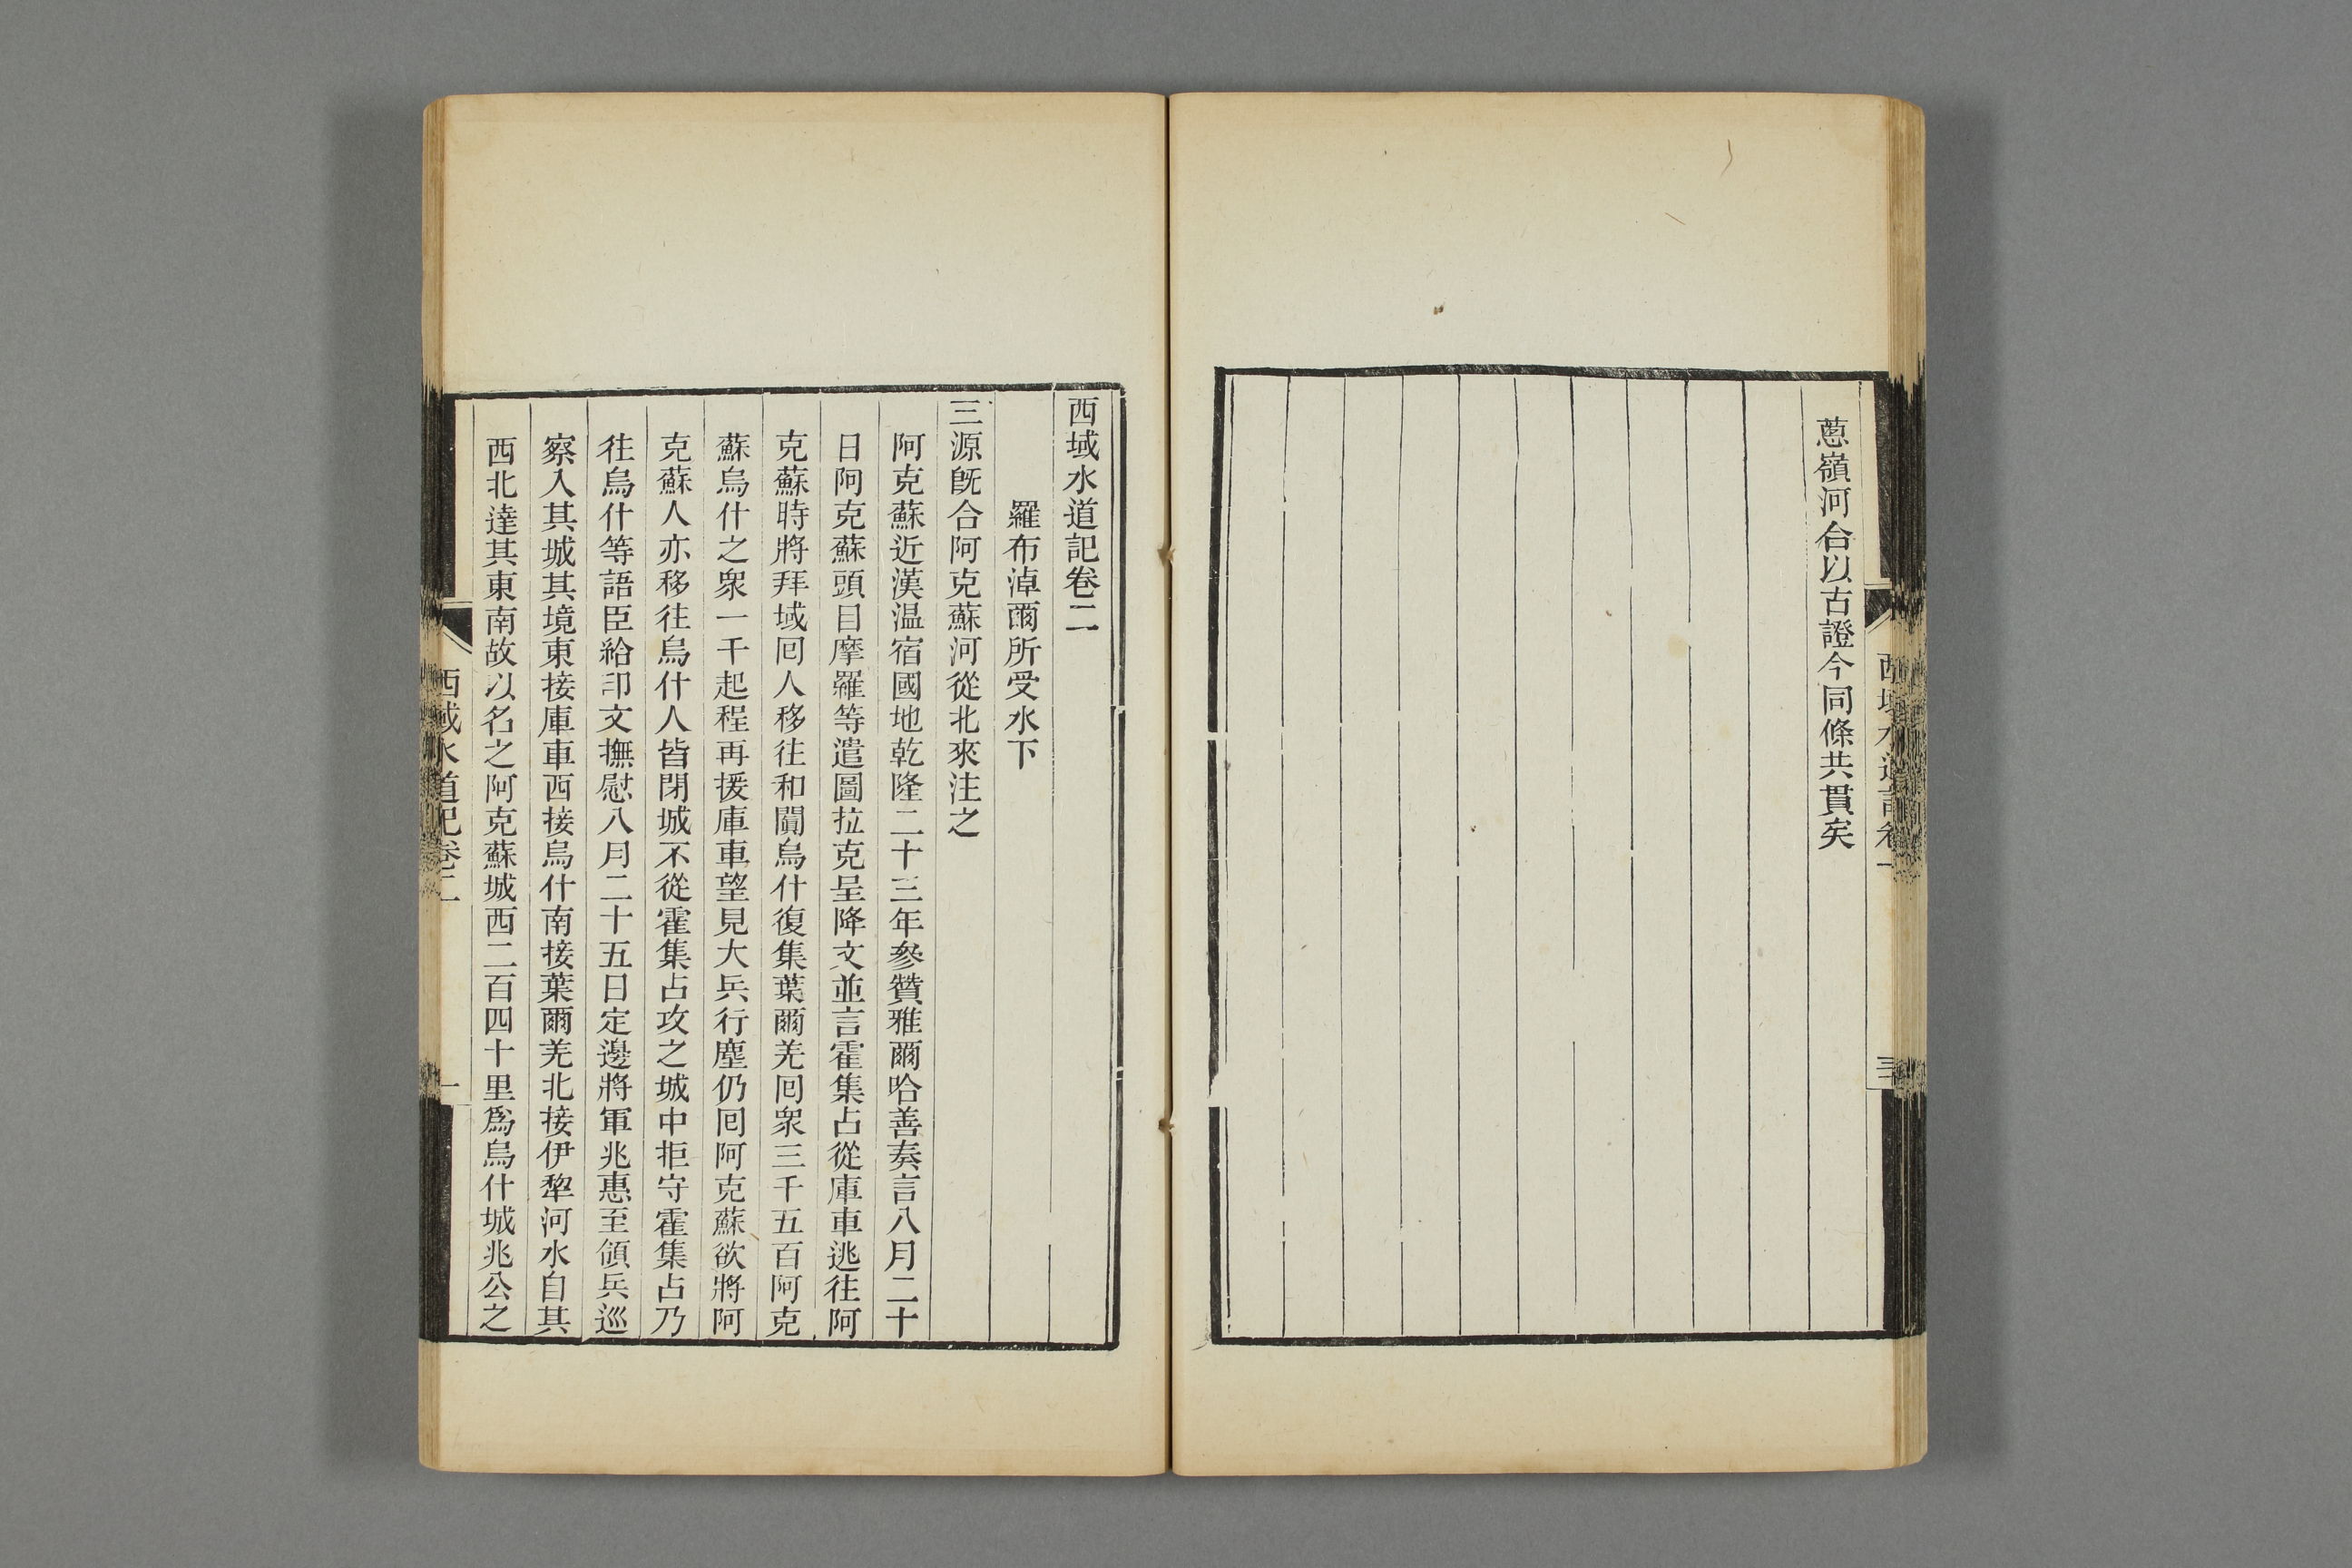 葱嶺河合以古證今同條共貫矣
西域水道記卷二
羅布淖爾所受水下
三源旣合阿克蘇河從北來注之
阿克蘇近漢温宿國地乾隆二十三年參贊雅爾哈善奏言八月二十
日阿克蘇頭目摩羅等遣圖拉克呈降文並言霍集占從庫車逃往阿
克蘇時將拜城囘人移往和闐烏什復集葉爾羌囘衆三千五百阿克
蘇烏什之衆一千起程再援庫車望見大兵行塵仍囘阿克蘇欲將阿
克蘇人亦移往烏什人皆閉城不從霍集占攻之城中拒守霍集占乃
往烏什等語臣給印文撫慰八月二十五日定邊將軍兆惠至領兵巡
察入其城其境東接庫車西接烏什南接葉爾羌北接伊犂河水自其
西北達其東南故以名之阿克蘇城西二百四十里爲烏什城兆公之
西域水道記卷二
一